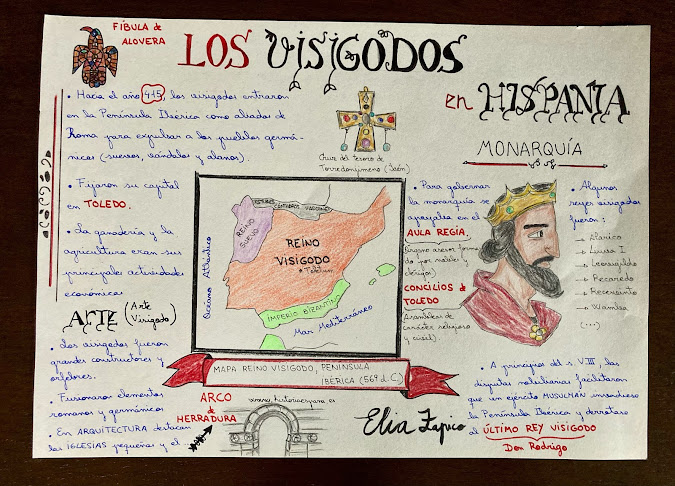 FÍBULA de
ALOVERA
LOS VISIGODOS
en HISPANIA
• Hacia el año 415, los visigodos entraron
en la Península Ibérica como aliados de
Roma para expulsar a los pueblos germá-
nicos (suevos, vándalos y alanos).
• Fijaron su capital
en TOLEDO.
• La ganadería y la
agricultura eran sus
principales actividades
económicas
ARTE (Arte
Visigodo)
• Los visigodos fueron
grandes constructores y
orfebres.
• Fusionaron elementos
romanos y germánicos.
• En ARQUITECTURA destacan
las IGLESIAS pequeñas y el
ARCO
de
HERRADURA
Cruz del tesoro de
Torredonjimeno (Jaén)
Océano Atlántico
REINO
SUEVO
ASTURES CÁNTABROS VASCONES
REINO
VISIGODO
• Toletum
IMPERIO BIZANTINO
Mar Mediterráneo
MAPA REINO VISIGODO, PENÍNSULA
IBÉRICA (569 d.C)
Elia Zapico
MONARQUÍA
• Para gobernar
la monarquía se
apoyaba en el
AULA REGIA,
(órgano asesor forma
do por nobles y
clérigos)
CONCILIOS de
TOLEDO
(Asambleas de
carácter religioso
y civil).
• Algunos
reyes visigodos
fueron:
→ Alarico
→ Liuva I
→ Leovigildo
→ Recaredo
→ Recesvinto
→ Wamba
(...)
• A principios del s. VIII, las
disputas nobiliarias facilitaron
que un ejército MUSULMÁN invandiese
la Península Ibérica y derrotase
al ÚLTIMO REY VISIGODO
Don Rodrigo